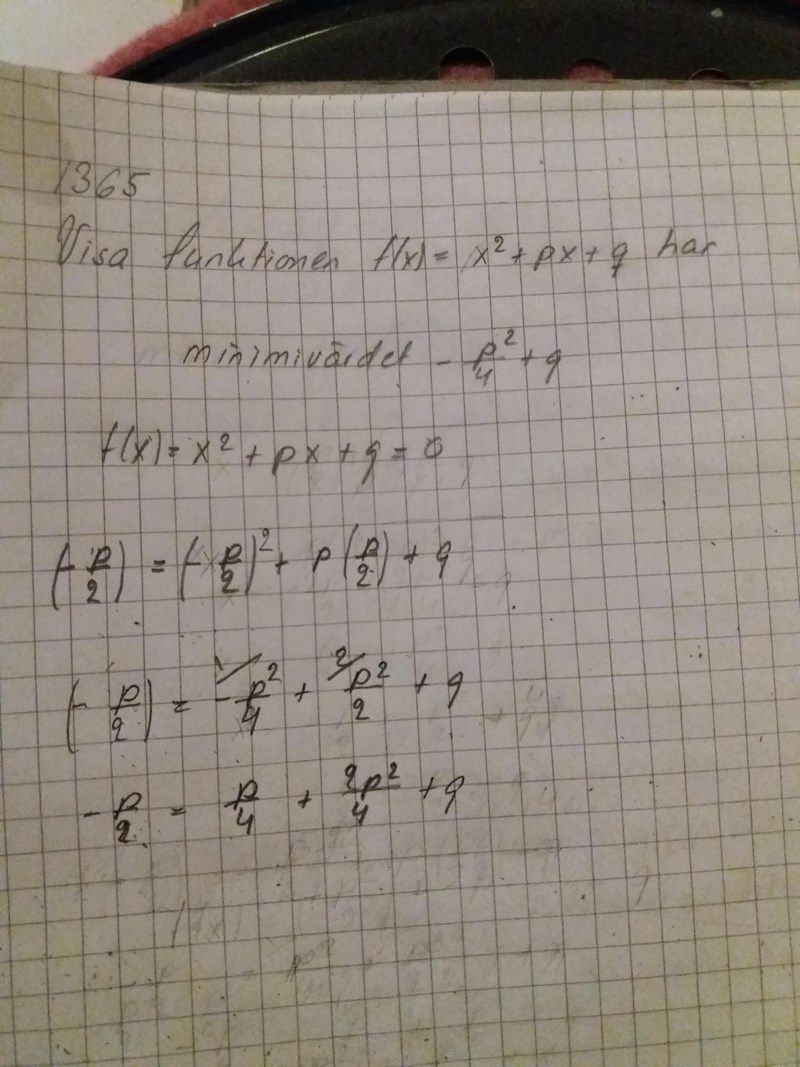 1365
Visa funktionen f(x) = x² + px + q har
minimivärdet - p²/4 + q
f(x) = x² + px + q = 0
(- p/2) = (- p/2)² + p(p/2) + q
(- p/2) = - p²/4 + 2/ p²/2 + q
- p/2 = p/4 + 2p²/4 + q